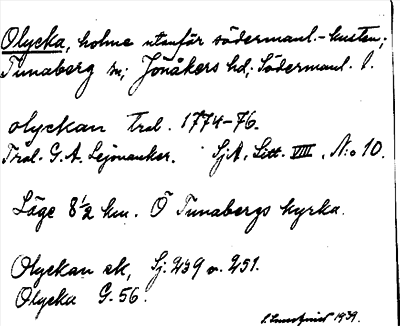 Olycka, holme utanför södermanl.-kusten;
Tunaberg sn; Jönåkers hd; Södermanl. l.
olyckan Tral. 1774-76.
Tral. G. A. Lejonanker. SjA, Litt. VIII, N:o 10.
Läge 8 1/2 km. Ö Tunabergs kyrka.
Olyckan ek, Sj. 239 o. 251.
Olycka G. 56.
1939.